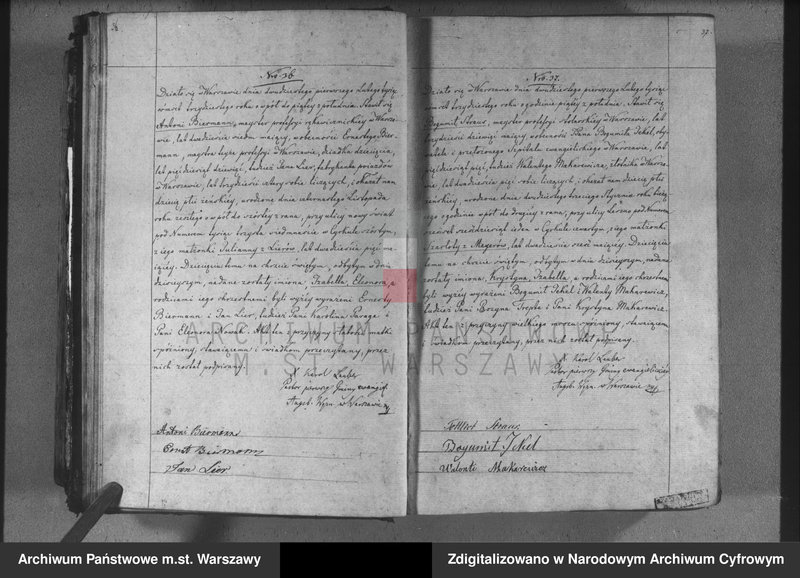 36
Nro 36.
Działo się w Warszawie dnia dwudziestego pierwszego Lutego tysiąc
ośmset trzydziestego roku o wpół do piątey z południa. Stawił się
Antoni Biermann, majster professyi rękawiczniczey w Warsza-
wie, lat dwadzieścia siedm maiący, w obecności Ernesta Bier-
mann, majstra teyże professyi w Warszawie, dziadka dziecięcia,
lat pięćdziesiąt dziewięć, tudzież Jana Lier, fabrykanta poiazdów
w Warszawie, lat trzydzieści cztery sobie liczących, i okazał nam
dziecię płci żeńskiey, urodzone dnia czternastego Listopada
roku zeszłego o wpół do szóstey z rana, przy ulicy nowy świat
pod Numerem tysiąc trzysta siedmnaście w Cyrkule szóstym,
z iego małżonki Julianny z Lierów, lat dwadzieścia pięć ma-
iącey. Dziecięciu temu na chrzcie świętym, odbytym w dniu
dzisieyszym, nadane zostały imiona, Izabella, Eleonora, a
rodzicami iego chrzestnemi byli wyżey wyrażeni Ernest
Biermann i Jan Lier, tudzież Pani Karolina i
Pani Eleonora Nowak. Akt ten z przyczyny słabości matki
opóźniony, stawaiącemu i świadkom przeczytany, przez
nich został podpisany.
X Karol Lauber
Pastor pierwszy Gminy ewangel
Augsb. Wyzn. w Warszawie
Antoni Biermann
Ernst Biermann
Jan Lier
37
Nro 37.
Działo się w Warszawie dnia dwudziestego pierwszego Lutego tysiąc
ośmset trzydziestego roku o godzinie piątey z południa. Stawił się
Bogumił majster professyi stolarskiey w Warszawie, lat
trzydzieści dziewięć maiący, w obecności Pana Bogumiła Jekel, oby-
watela i przełożonego Szpitala ewangielickiego w Warszawie, lat
pięćdziesiąt pięć, tudzież Walentego Makarewicza, złotnika w Warsza-
wie, lat dwadzieścia pięć sobie liczących, i okazał nam dziecię płci
żeńskiey, urodzone dnia dwudziestego trzeciego Stycznia roku bieżą-
cego o godzinie wpół do drugiey z rana, przy ulicy Leszno pod Numerem
sześćset sześćdziesiąt ieden w Cyrkule czwartym, z iego małżonki
Szarloty z Mayerów, lat dwadzieścia sześć maiącey. Dziecięciu
temu na chrzcie świętym, odbytym w dniu dzisieyszym, nadane
zostały imiona, Krystyna, Izabella, a rodzicami iego chrzestnemi
byli wyżey wyrażeni Bogumił Jekel i Walenty Makarewicz,
tudzież Pani Rozyna i Pani Krystyna Makarewicz.
Akt ten z przyczyny wielkiego mrozu opóźniony, stawaiącemu
i świadkom przeczytany, przez nich został podpisany.
X Karol Lauber
Pastor pierwszy Gminy ewangielickiey
Augsb. Wyzn. w Warszawie
Bogumił Jekel
Walenti Makarewicz
ARCHIWUM PAŃSTWOWE
M.ST. WARSZAWY
Archiwum Państwowe m.st. Warszawy
Zdigitalizowano w Narodowym Archiwum Cyfrowym